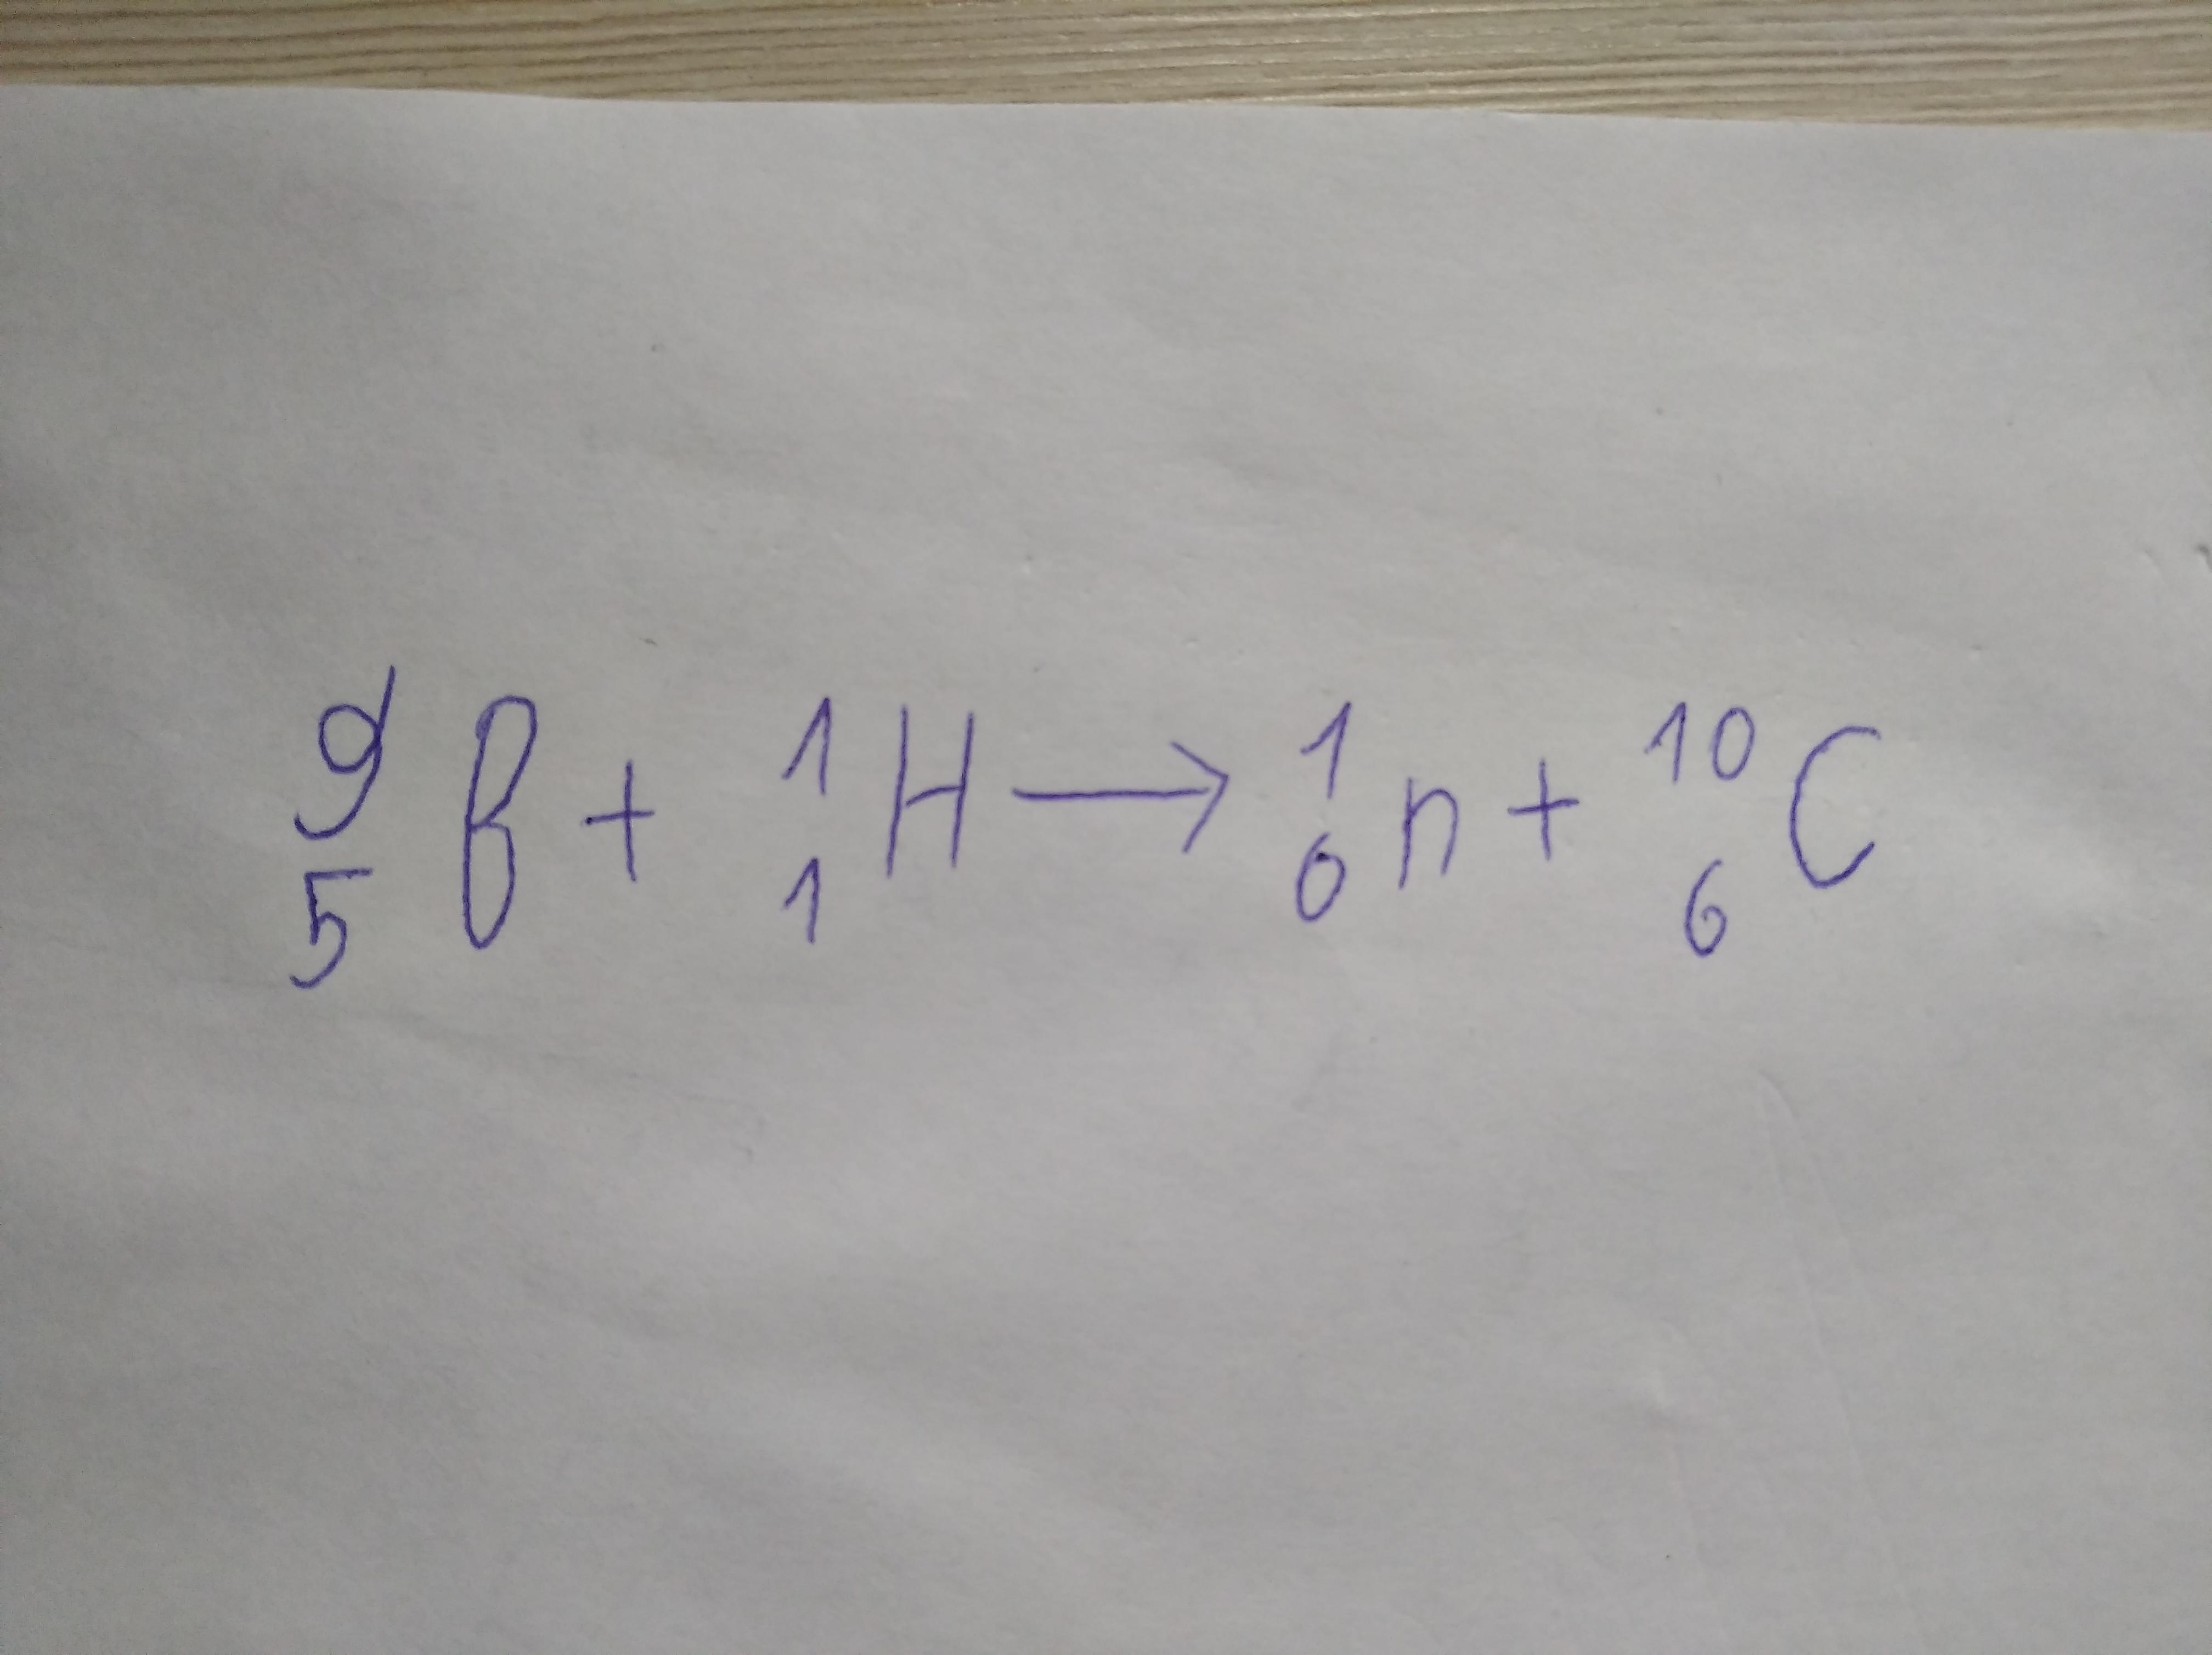 ⁹₅B + ¹₁H → ¹₀n + ¹⁰₆C